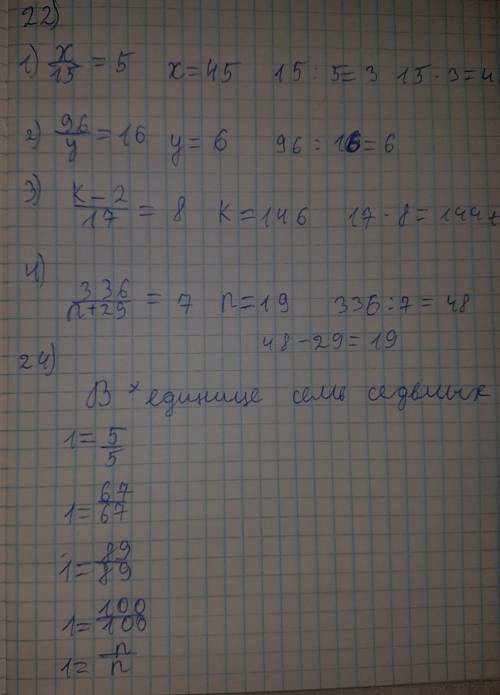 22)
1) x/15 = 5 x=45 15 : 5=3 15 · 3=4
2) 96/y = 16 y= 6 96 : 16=6
3) k-2/17 = 8 k=146 17 · 8=144+
4) 336/n+29 = 7 n=19 336:7=48
48-29=19
24)
В единице семь седьмых
1=5/5
1=67/67
1=89/89
1=100/100
1=n/n